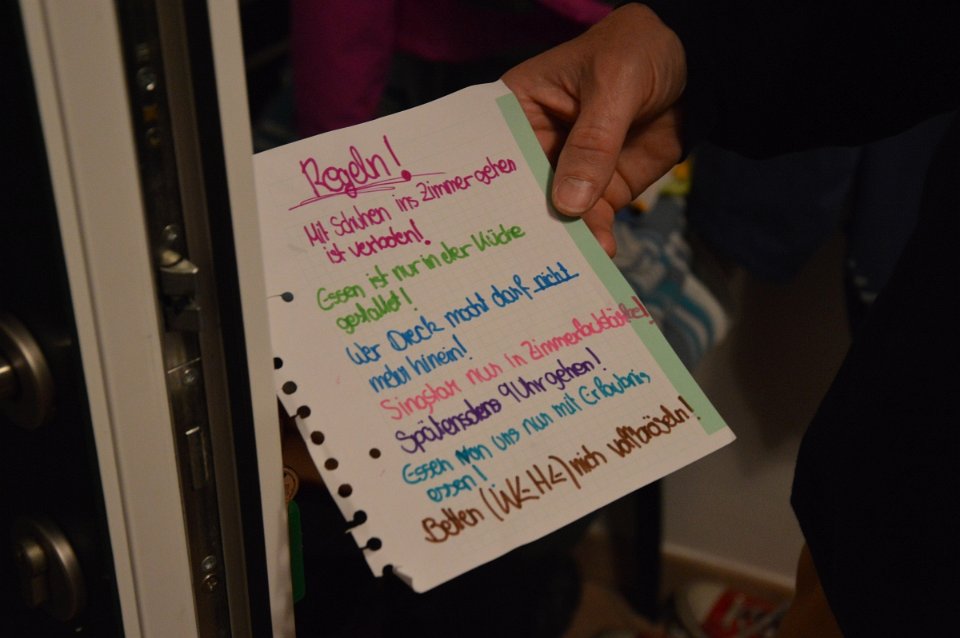 Regeln!
Mit Schuhen ins Zimmer gehen
ist verboten!
Essen ist nur in der Küche
gestattet!
Wer Dreck macht darf nicht
mehr hinein!
Singstar nur in Zimmerlautstärke!
Spätensdens 9 Uhr gehen!
Essen von uns nur mit Erlaubnis
essen!
Betten (WEHE) nich vollbröseln!